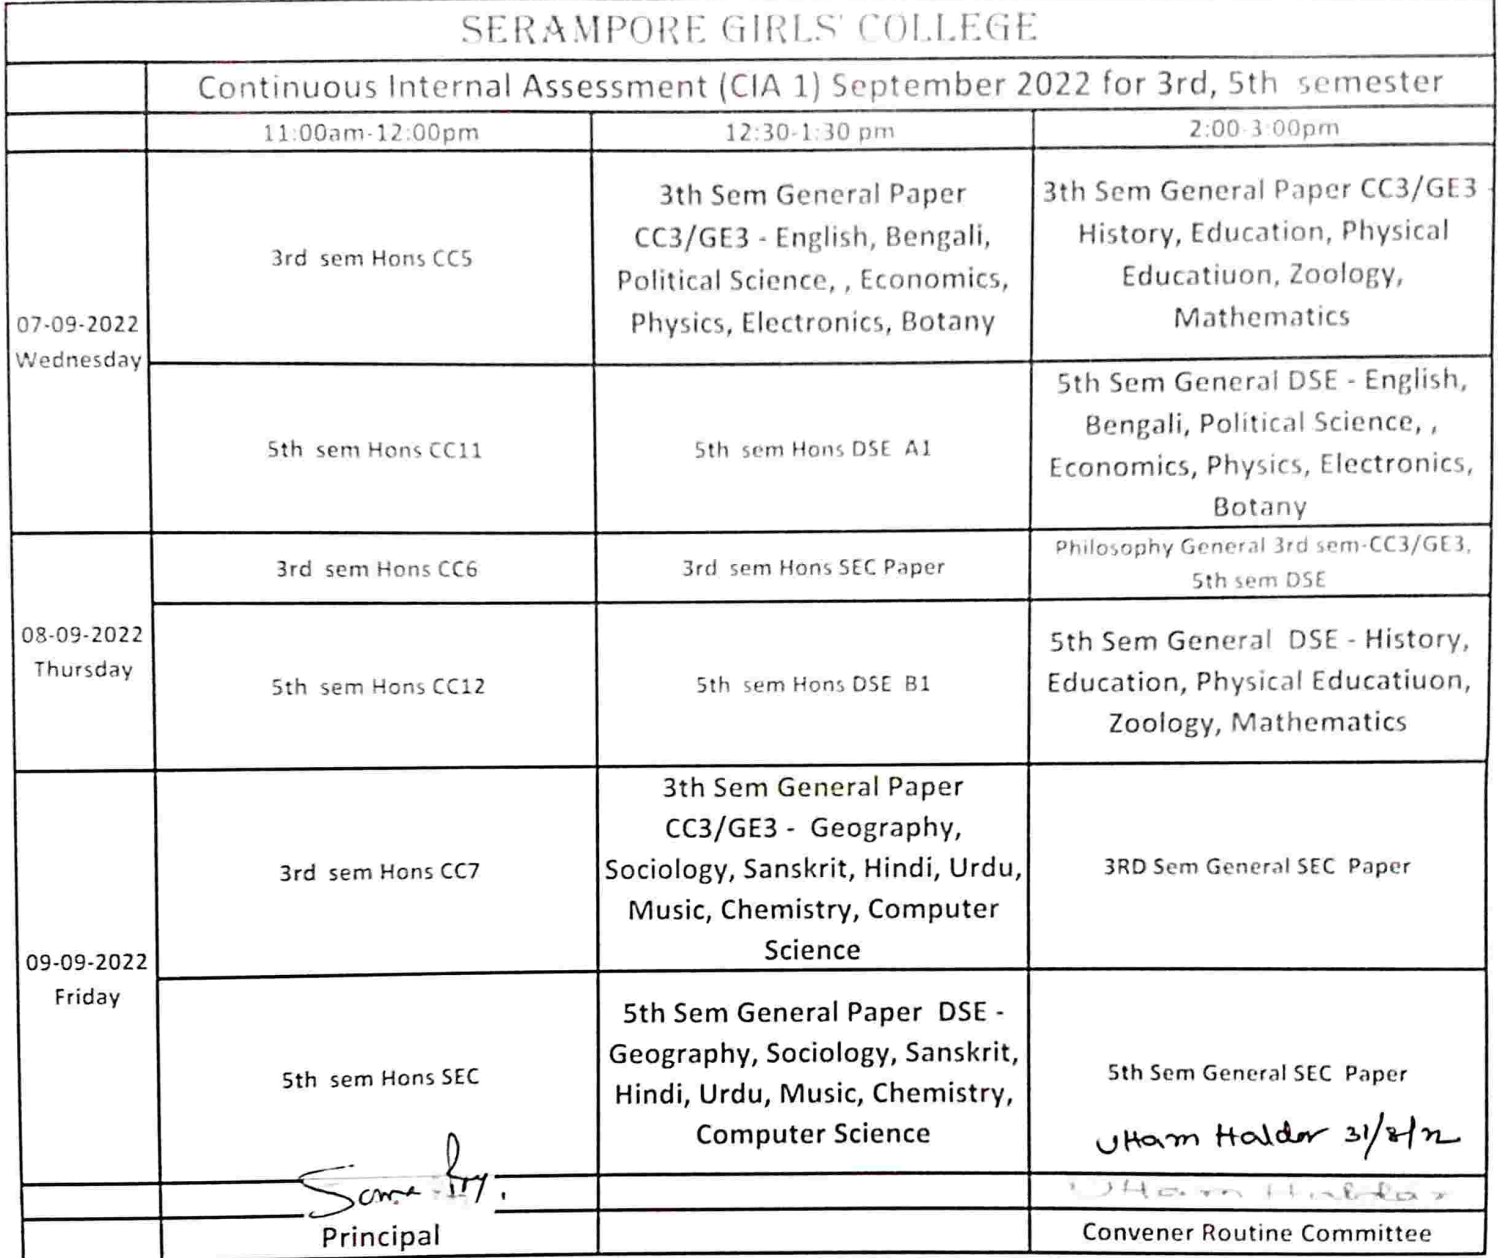 SERAMPORE GIRLS' COLLEGE
Continuous Internal Assessment (CIA 1) September 2022 for 3rd, 5th semester
11:00am-12:00pm
12:30-1:30 pm
2:00-3:00pm
07-09-2022
Wednesday
3rd sem Hons CC5
3th Sem General Paper
CC3/GE3 - English, Bengali,
Political Science, , Economics,
Physics, Electronics, Botany
3th Sem General Paper CC3/GE3 -
History, Education, Physical
Educatiuon, Zoology,
Mathematics
5th sem Hons CC11
5th sem Hons DSE A1
5th Sem General DSE - English,
Bengali, Political Science, ,
Economics, Physics, Electronics,
Botany
08-09-2022
Thursday
3rd sem Hons CC6
3rd sem Hons SEC Paper
Philosophy General 3rd sem-CC3/GE3,
5th sem DSE
5th sem Hons CC12
5th sem Hons DSE B1
5th Sem General DSE - History,
Education, Physical Educatiuon,
Zoology, Mathematics
09-09-2022
Friday
3rd sem Hons CC7
3th Sem General Paper
CC3/GE3 - Geography,
Sociology, Sanskrit, Hindi, Urdu,
Music, Chemistry, Computer
Science
3RD Sem General SEC Paper
5th sem Hons SEC
5th Sem General Paper DSE -
Geography, Sociology, Sanskrit,
Hindi, Urdu, Music, Chemistry,
Computer Science
5th Sem General SEC Paper
Haldar 31/8/22
Principal
Convener Routine Committee